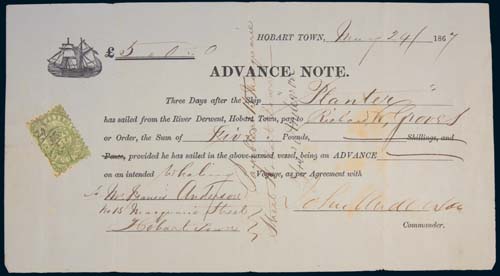 HOBART TOWN, May 24 / 1867
£ 5 " 0 " 0
ADVANCE NOTE.
Three Days after the Ship "Planter"
has sailed from the River Derwent, Hobart Town, pay to Richard Groves
or Order, the Sum of Five Pounds, Shillings, and
Pence, provided he has sailed in the above-named vessel, being an ADVANCE
on an intended Whaling Voyage, as per Agreement with
To Mr Francis Anderson
No 15 Macquarie Street
Hobart Town
John Anderson
Commander.